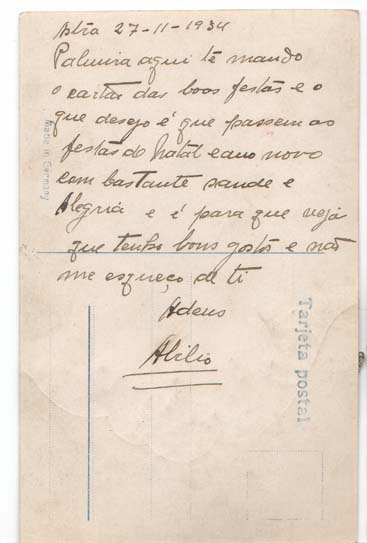 Astra 27-11-1934
Palmira aqui te mando
o cartão das boas festas e o
que desejo é que passem as
festas do Natal e ano novo
com bastante saude e
Alegria e é para que veja
que tenho bons gostos e não
me esqueço de ti
Adeus
Abilio
Made in Germany
Tarjeta postal